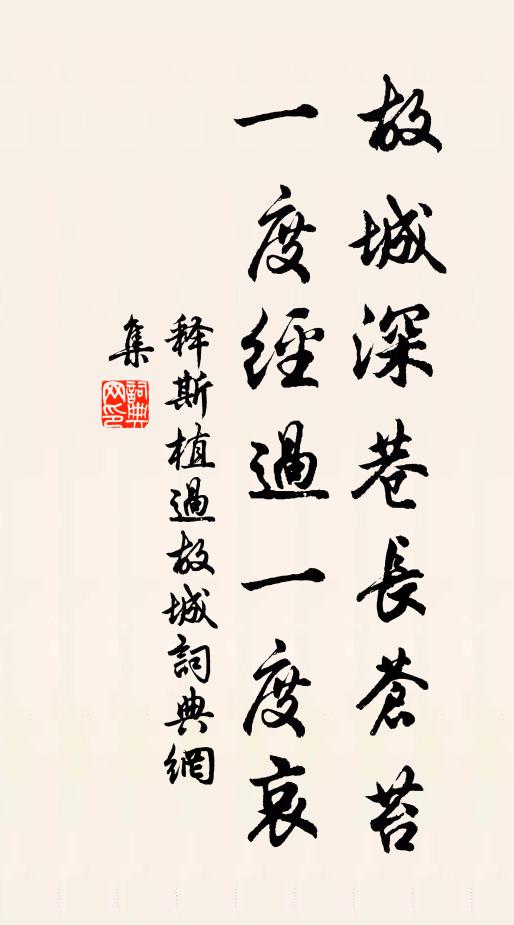 故城深巷長蒼苔
一度經過一度哀
释斯植過故城詞典網
集
詞典网印